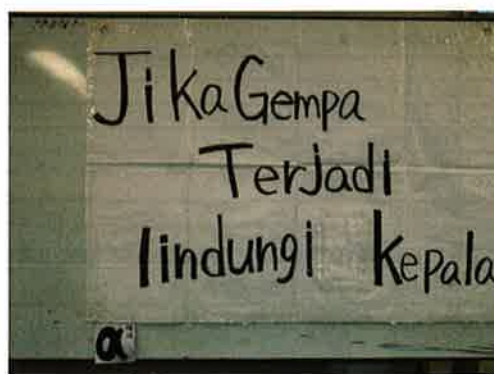 Jika Gempa
Terjadi
lindungi kepala
α